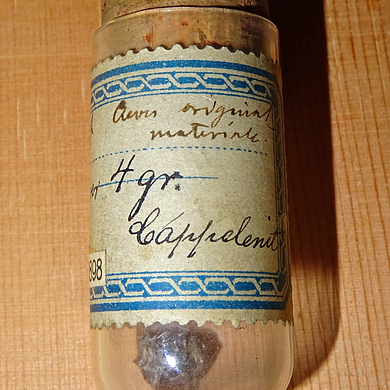 Cleves original
materiale.
4 gr.
Cappelenit
898